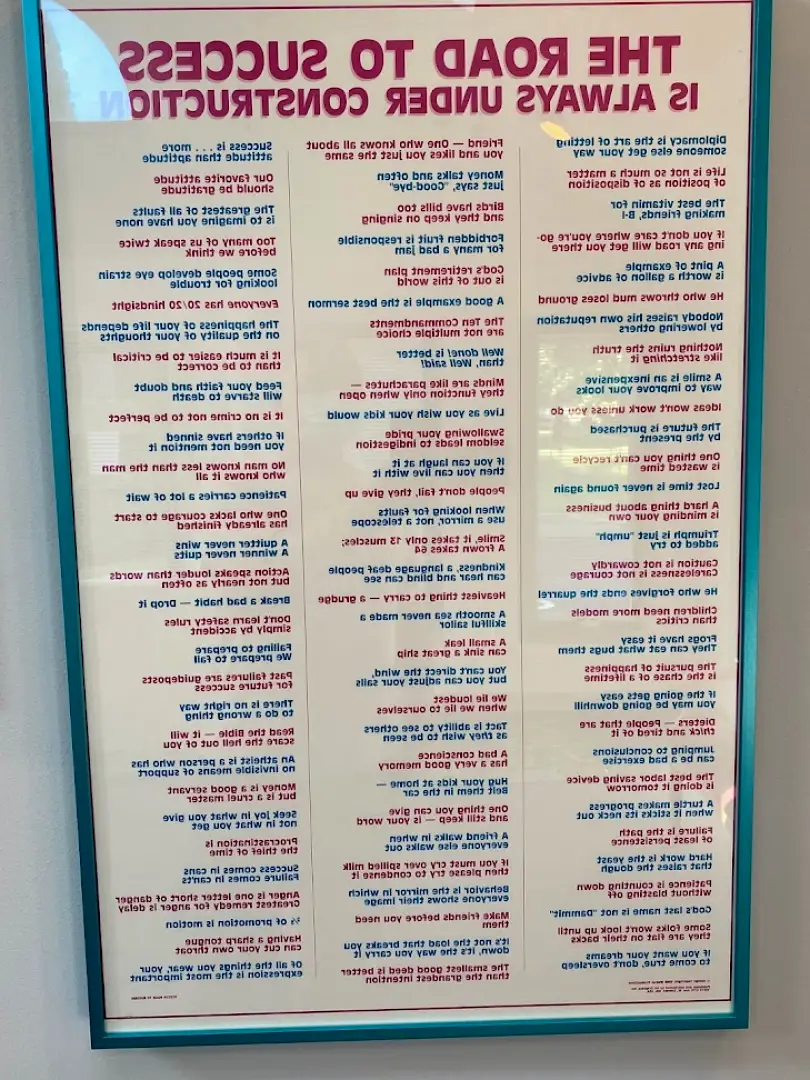 THE ROAD TO SUCCESS
IS ALWAYS UNDER CONSTRUCTION
Diplomacy is the art of letting
someone else get your way
Life is not so much a matter
of position as of disposition
The best vitamin for
making friends, B-1
If you don't care where you're go-
ing any road will get you there
A pint of example
is worth a gallon of advice
He who throws mud loses ground
Nobody raises his own reputation
by lowering others
Nothing ruins the truth
like stretching it
A smile is an inexpensive
way to improve your looks
Ideas won't work unless you do
The future is purchased
by the present
One thing you can't recycle
is wasted time
Lost time is never found again
A hard thing about business
is minding your own
Triumph is just "umph"
added to try
Caution is not cowardly
Carelessness is not courage
He who forgives ends the quarrel
Children need more models
than critics
Frogs have it easy
They can eat what bugs them
The pursuit of happiness
is the chase of a lifetime
If the going gets easy
you may be going downhill
Dieters — People that are
thick and tired of it
Jumping to conclusions
can be a bad exercise
The best labor saving device
is doing it tomorrow
A turtle makes progress
when it sticks its neck out
Failure is the path
of least persistence
Hard work is the yeast
that raises the dough
Patience is counting down
without blasting off
God's last name is not "Dammit"
Some folks won't look up until
they are flat on their backs
If you want your dreams
to come true, don't oversleep
Friend — One who knows all about
you and likes you just the same
Money talks and often
just says, "Good-bye"
Birds have bills too
and they keep on singing
Forbidden fruit is responsible
for many a bad jam
God's retirement plan
is out of this world
A good example is the best sermon
The Ten Commandments
are not multiple choice
Well done! is better
than, Well said!
Minds are like parachutes —
they function only when open
Live as you wish your kids would
Swallowing your pride
seldom leads to indigestion
If you can laugh at it
then you can live with it
People don't fail, they give up
When looking for faults
use a mirror, not a telescope
Smile, it takes only 13 muscles;
A frown takes 64
Kindness, a language deaf people
can hear and blind can see
Heaviest thing to carry — a grudge
A smooth sea never made a
skillful sailor
A small leak
can sink a great ship
You can't direct the wind,
but you can adjust your sails
We lie loudest
when we lie to ourselves
Tact is ability to see others
as they wish to be seen
A bad conscience
has a very good memory
Hug your kids at home —
Belt them in the car
One thing you can give
and still keep — is your word
A friend walks in when
everyone else walks out
If you must cry over spilled milk
then please try to condense it
Behavior is the mirror in which
everyone shows their image
Make friends before you need
them
It's not the load that breaks you
down, it's the way you carry it
The smallest good deed is better
than the grandest intention
Success is . . . more
attitude than aptitude
Our favorite attitude
should be gratitude
The greatest of all faults
is to imagine you have none
Too many of us speak twice
before we think
Some people develop eye strain
looking for trouble
Everyone has 20/20 hindsight
The happiness of your life depends
on the quality of your thoughts
It is much easier to be critical
than to be correct
Feed your faith and doubt
will starve to death
It is no crime not to be perfect
If others have sinned
you need not mention it
No man knows less than the man
who knows it all
Patience carries a lot of wait
One who lacks courage to start
has already finished
A quitter never wins
A winner never quits
Action speaks louder than words
but not nearly as often
Break a bad habit — Drop it
Don't learn safety rules
simply by accident
Failing to prepare
We prepare to fall
Past failures are guideposts
for future success
There is no right way
to do a wrong thing
Read the Bible — it will
scare the hell out of you
An atheist is a person who has
no invisible means of support
Money is a good servant
but is a cruel master
Seek joy in what you give
not in what you get
Procrastination is
the thief of time
Success comes in cans
Failure comes in can'ts
Anger is one letter short of danger
Greatest remedy for anger is delay
⅔ of promotion is motion
Having a sharp tongue
can cut your own throat
Of all the things you wear, your
expression is the most important